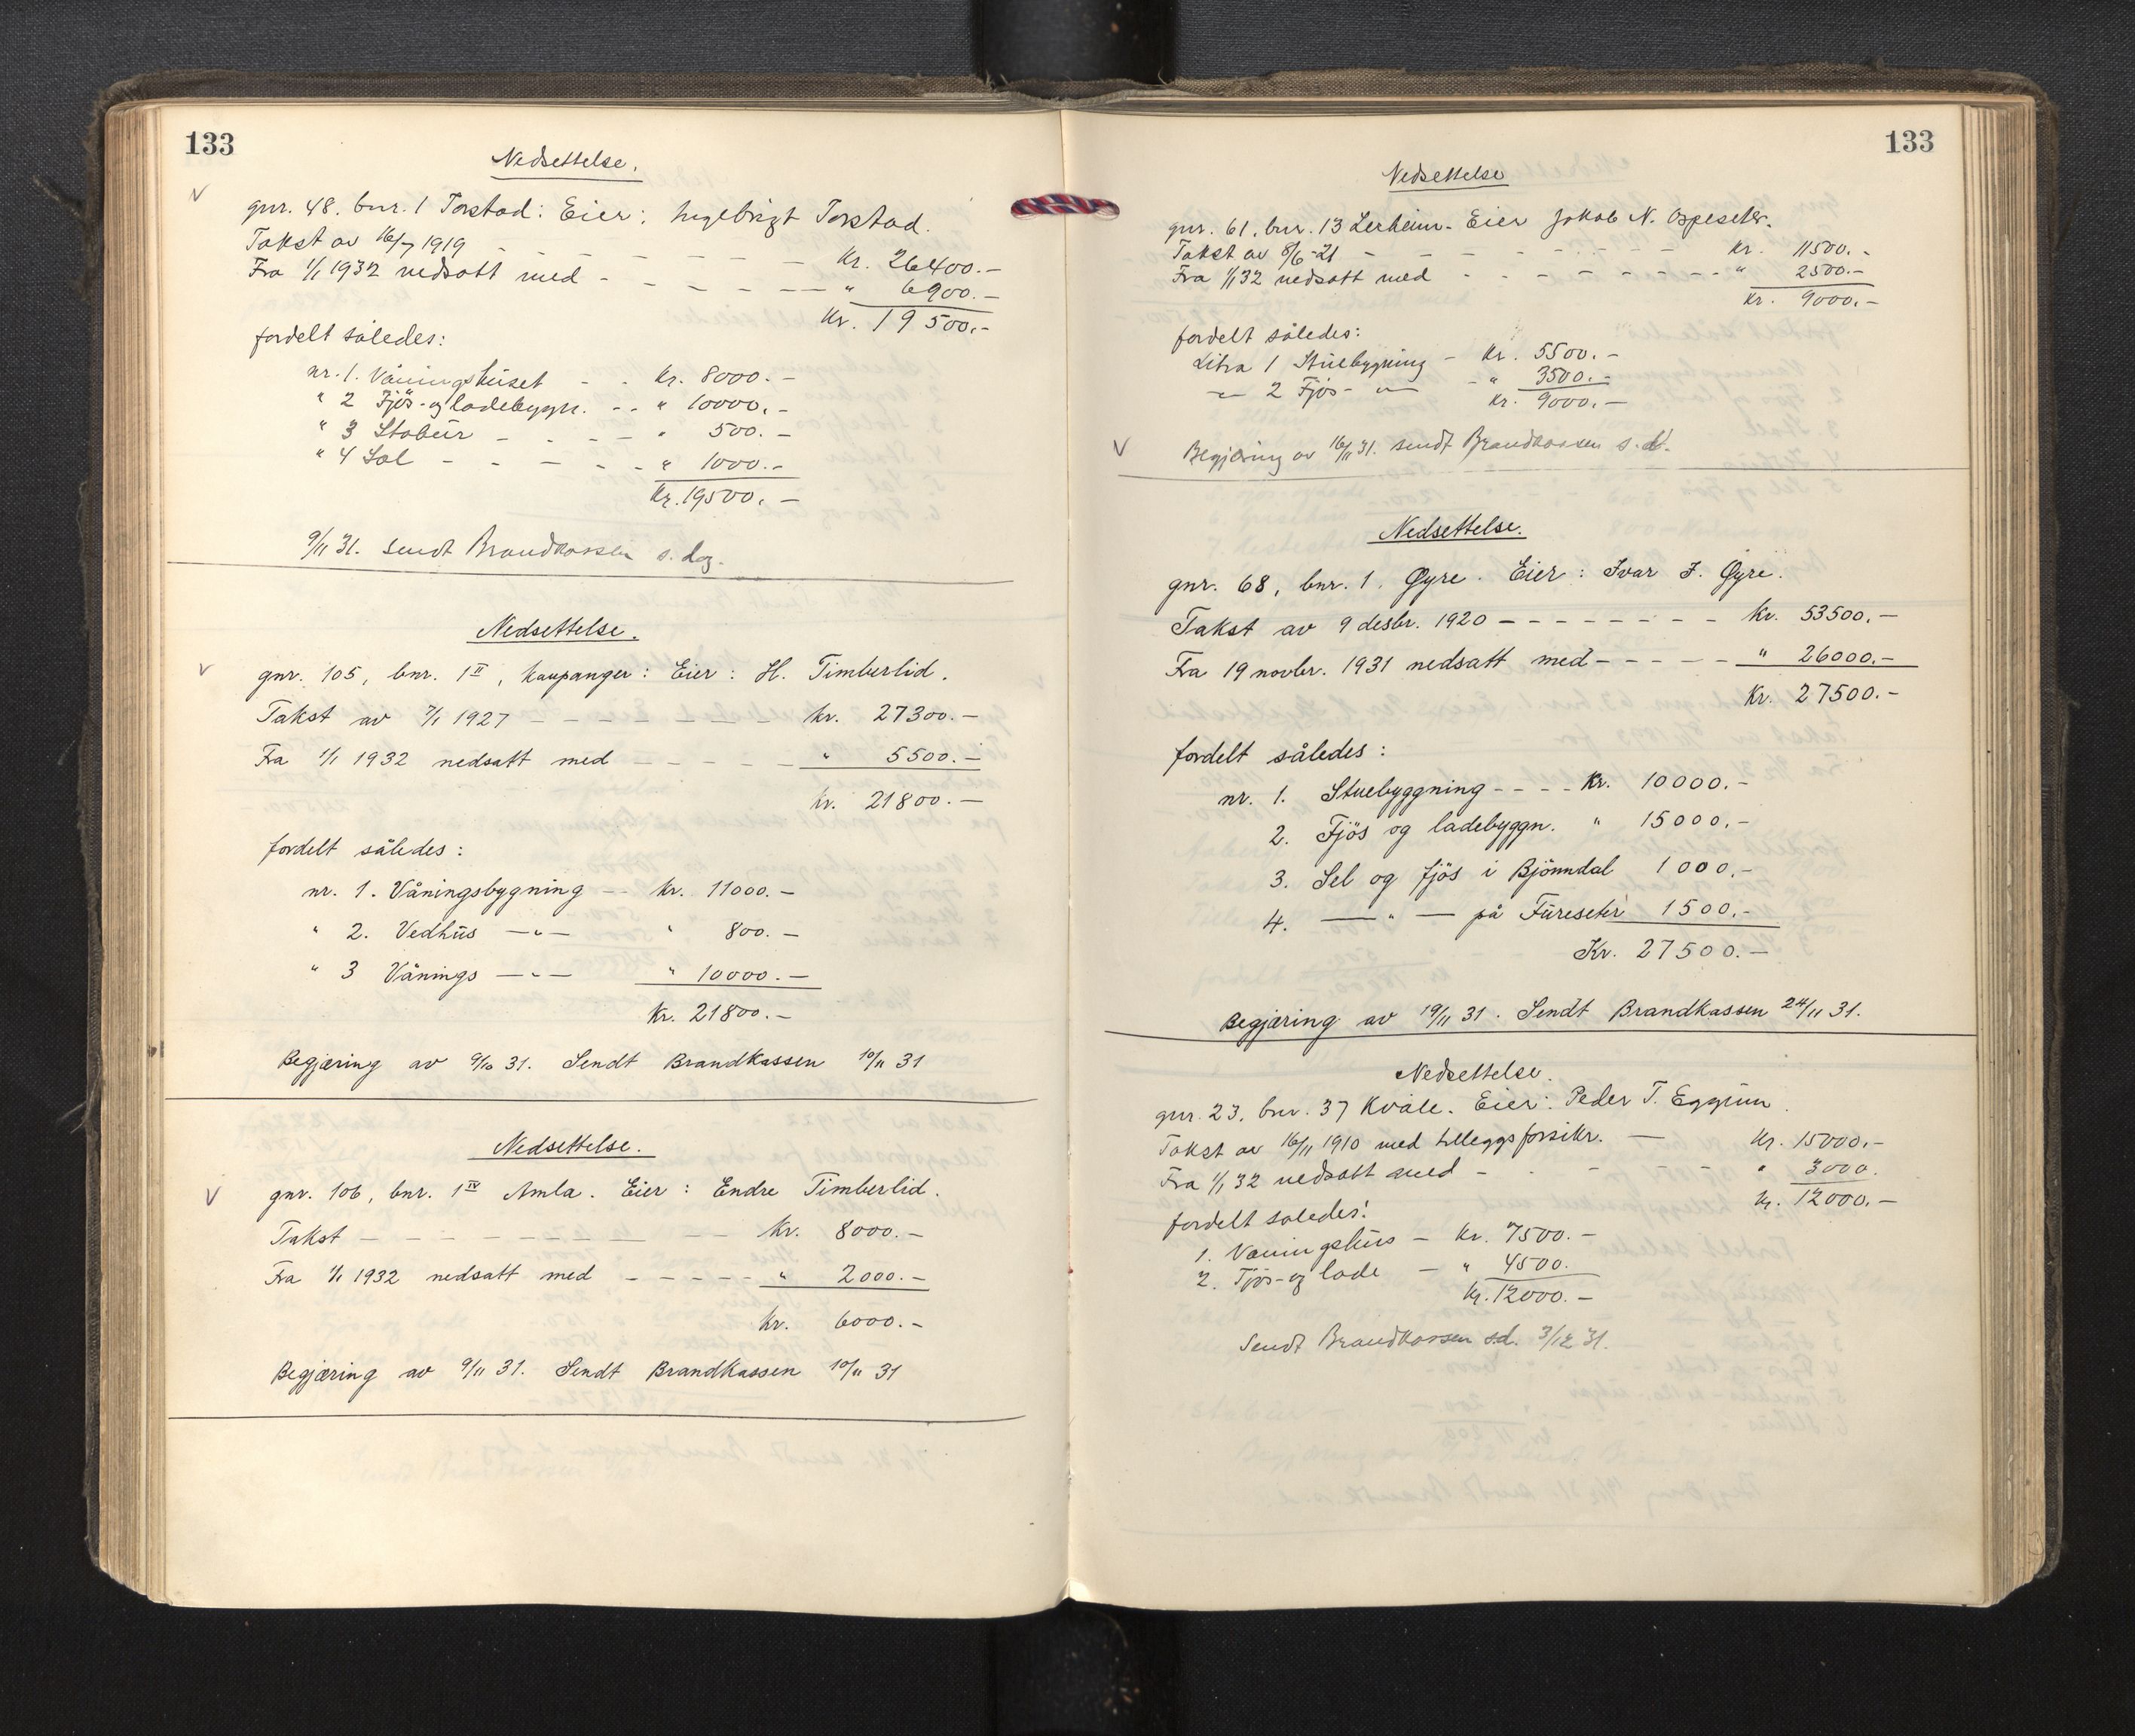 133
Nedsettelse.
gnr. 48. bnr. 1 Torstad: Eier: Ingebrigt Torstad.
Takst av 16/7 1919 - - - - - - Kr. 26400.-
Fra 1/1 1932 nedsatt med - - - - - " 6900.-
Kr. 19500.-
fordelt således:
nr. 1. Våningshuset - - Kr. 8000.-
" 2 Fjös- og ladebyggn. -- " 10000.-
" 3 Stabur - - - - " 500.-
" 4 Sal - - - - - " 1000.-
Kr. 19500.-
9/11 31. Sendt Brandkassen s. dag.
Nedsettelse.
gnr. 105, bnr. 1 II, Kaupanger: Eier: H. Timberlid.
Takst av 7/1 1927 - - - - - - - kr. 27300.-
Fra 1/1 1932 nedsatt med - - - - - " 5500.-
kr. 21800.-
fordelt således:
nr. 1. Våningsbygning -- kr. 11000.-
" 2. Vedhus —"— " 800.-
" 3 Vånings —"— " 10000.-
Kr. 21800.-
Begjæring av 9/10 31. Sendt Brandkassen 10/11 31
Nedsettelse.
gnr. 106, bnr. 1 IV Amla. Eier: Endre Timberlid.
Takst - - - - - - - - Kr. 8000.-
Fra 1/1 1932 nedsatt med - - - - - " 2000.-
Kr. 6000.-
Begjæring av 9/11 31. Sendt Brandkassen 10/11 31
133
Nedsettelse
gnr. 61. bnr. 13 Lerheim. Eier Jakob N. Ospeseter.
Takst av 8/6-21 - - - - - - - Kr. 11500.-
Fra 1/1 32 nedsatt med - - - - - - - " 2500.-
Kr. 9000.-
fordelt således:
Litra 1 Stuebygning - Kr. 5500.-
—"— 2 Fjös- —"— -" 3500.-
Kr. 9000.-
Begjæring av 16/11 31. sendt Brandkassen s. d.
Nedsettelse.
gnr. 68, bnr. 1. Øyre. Eier: Ivar J. Øyre.
Takst av 9 desbr. 1920 - - - - - - - - Kr. 53500.-
Fra 19 novbr. 1931 nedsatt med - - - - - " 26000.-
Kr. 27500.-
fordelt således:
nr. 1. Stuebyggning - - - - Kr. 10000.-
2. Fjös og ladebyggn. " 15000.-
3. Sel og fjös i Bjönndal 1000.-
4. —"— på Füreseter 1500.-
Kr. 27500.-
Begjæring av 19/11 31. Sendt Brandkassen 24/11 31.
Nedsettelse.
gnr. 23. bnr. 37 Kvåle. Eier: Peder T. Eggum.
Takst av 16/11 1910 med tilleggsforsikr. — Kr. 15000.-
Fra 1/1 32 nedsatt med - - - - - - " 3000.
Kr. 12000.-
fordelt således:
1. Våningshus - Kr. 7500.-
2. Fjös- og lade - " 4500.
Kr. 12000.-
Sendt Brandkassen s.d. 3/12 31.